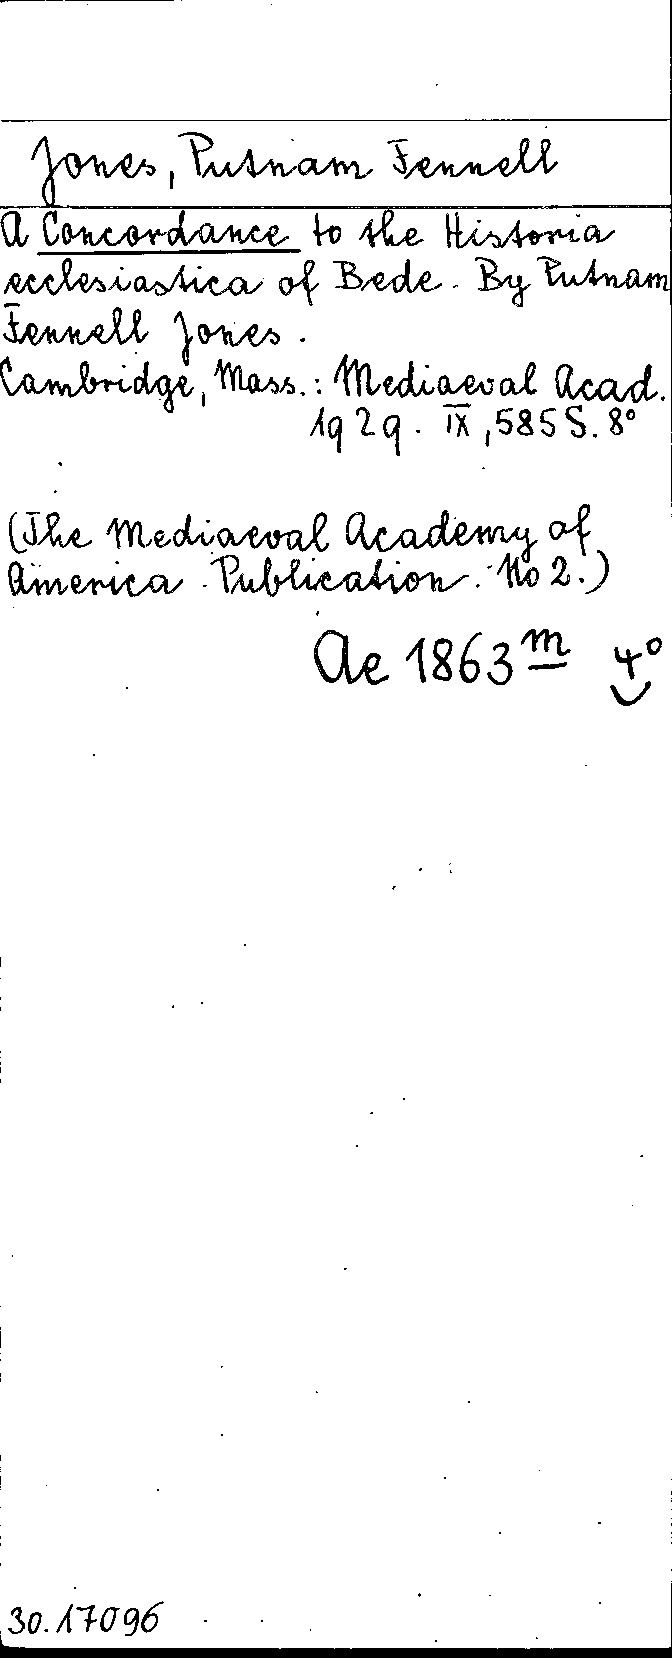 Jones, Putnam Fennell
A Concordance to the Historia
ecclesiastica of Bede. By Putnam
Fennell Jones.
Cambridge, Mass.: Mediaeval Acad.
1929. IX, 585 S. 8°
(The Mediaeval Academy of
America. Publication. No 2.)
Ae 1863 m 4°
30.17096